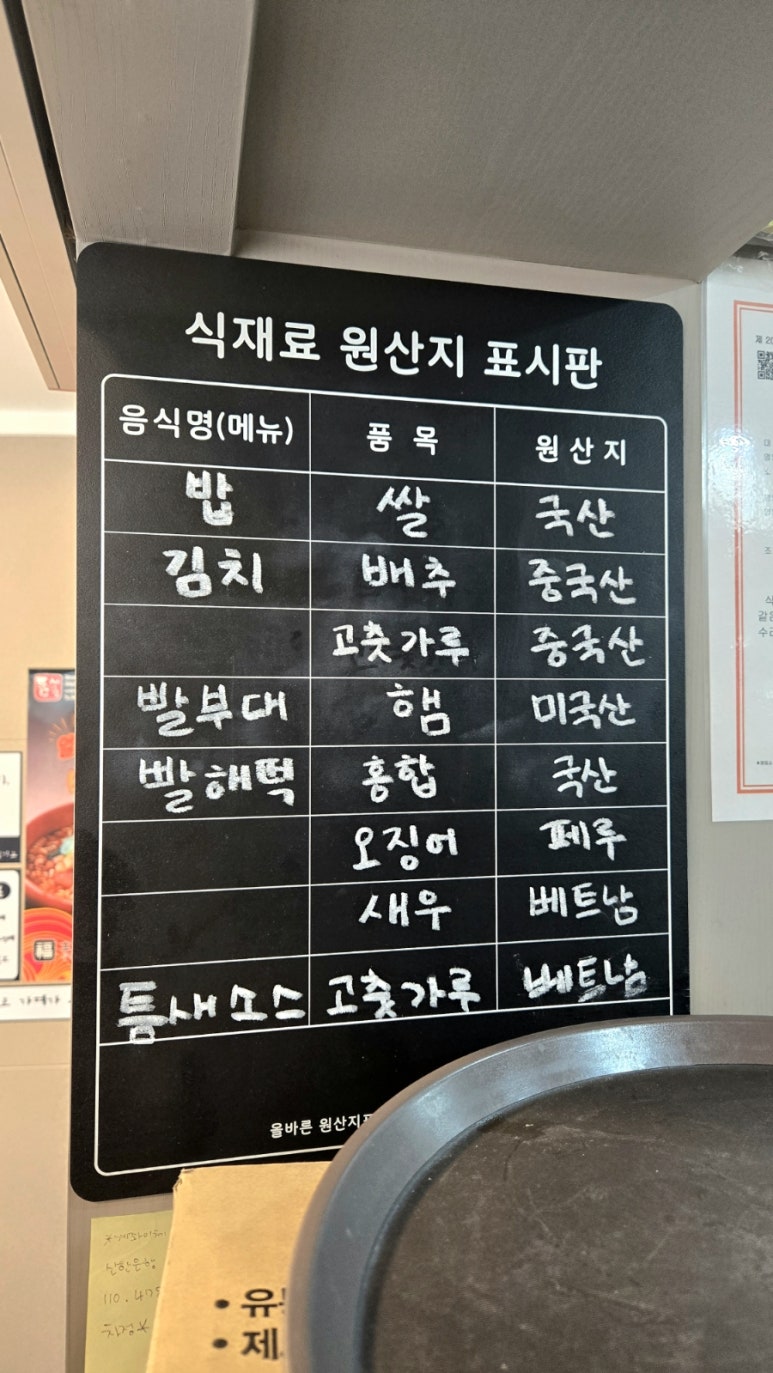 식재료 원산지 표시판
음식명(메뉴) 품 목 원 산 지
밥 쌀 국산
김치 배추 중국산
고춧가루 중국산
빨부대 햄 미국산
빨해떡 홍합 국산
오징어 페루
새우 베트남
틈새소스 고춧가루 베트남
올바른 원산지
110
• 유
• 제